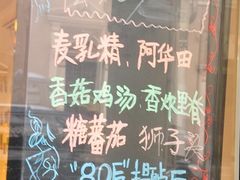 麦乳精、阿华田
香菇鸡汤 香炸里脊
糖蕃茄 狮子头
"80后"